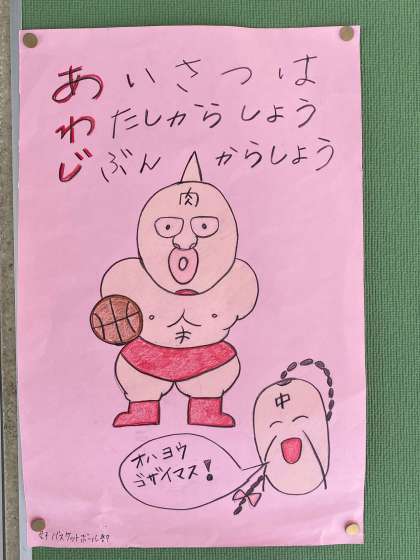 あいさつは
わたしからしょう
じぶん からしょう
肉
中
オハヨウ
ゴザイマス!
女子バスケットボール部